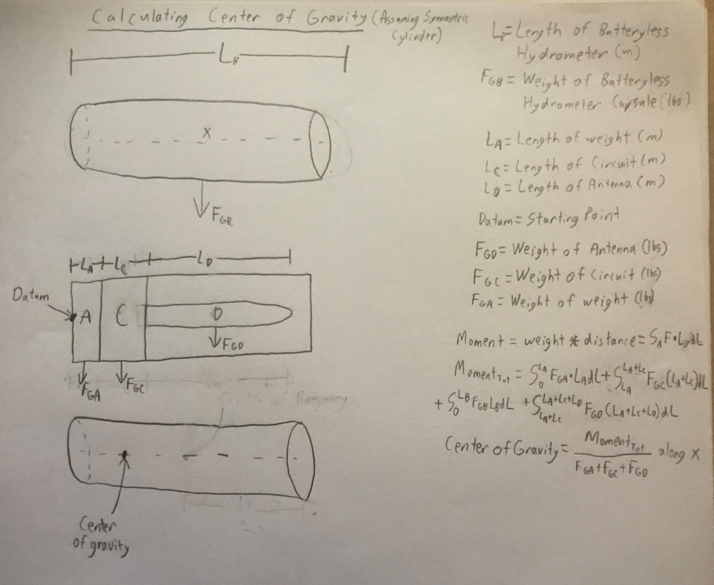 Calculating Center of Gravity (Assuming Symmetric
Cylinder)
L_B
X
F_GB
L_A L_C L_D
Datum
A C D
F_GD
F_GA F_GC
Center of gravity
L_B=Length of Batteryless
Hydrometer (m)
F_GB = Weight of Batteryless
Hydrometer Capsule (lbs)
L_A = Length of weight (m)
L_C = Length of Circuit (m)
L_D = Length of Antenna (m)
Datum = Starting Point
F_GD = Weight of Antenna (lbs)
F_GC = Weight of Circuit (lbs)
F_GA = Weight of weight (lbs)
Moment = weight * distance =
Moment_Tot = ∫_0^{L_A} F_GA·L_A dL + ∫_{L_A}^{L_A+L_C} F_GC(L_A+L_C)dL
+ ∫_0^{L_B} F_GB L_B dL + ∫_{L_A+L_C}^{L_A+L_C+L_D} F_GD(L_A+L_C+L_D)dL
Center of Gravity = Moment_Tot / F_GA+F_GC+F_GD along X